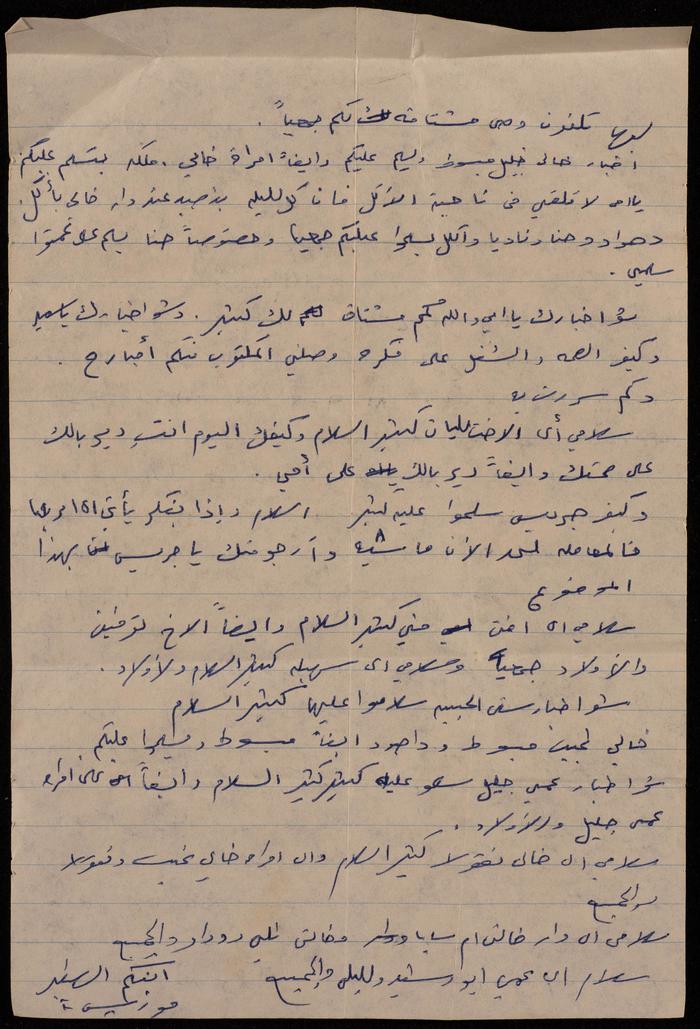 تلفون وهي مشتاقه لكم جميعاً.
أخبار خالي خليل مبسوط ويسلم عليكم وايضاً امراة خالي. ملكه بتسلم عليكم
يا امي لا تقلقي في ناحية الأكل فانا كل ليله عند دار خالي بأكل.
وحنا وناديا والكل يسلموا عليكم جميعا وخصوصاً حنا يسلم على
سلمى.
شو اخبارك يا ابي والله كم مشتاق لك كثير. وشو اخبارك يا سعيد
وكيف الصحه والشغل على فكره وصلني المكتوب منكم أمبارح.
وكم سررت به
سلامي أى الاخت ليليان كثير السلام وكيفك اليوم انتِ ديري بالك
على صحتك وايضاً ديري بالك على أمي.
وكيف جريس سلموا عليه كثير السلام وإذا بفكر يأتي الى
فالمعامله لحد الأن ماشيه وأرجو منك يا جريس بهذا
الموضوع
سلامي الى اختي مني كثير السلام وايضاً الاخ توفيق
والأولاد جميعاً وسلامي الى سهيله كثير السلام والأولاد.
شو اخبار ستي الحبيبه سلاموا عليها كثير السلام
خالي نجيب مبسوط وداهود ايضاً مبسوط ويسلموا عليكم
شو اخبار عمي جليل سلمو عليه كثير كثير السلام وايضاً على امراة
عمي جليل والأولاد.
سلامي الى خالي نقولا كثير السلام والى امراة خالي نجيب ونقولا
والجميع
سلامي الى دار خالتي ام سابا وخالتي روزا والجميع
سلام الى عمي ابو رشيد وليلى والجميع
ابنكم الصغير
موريس